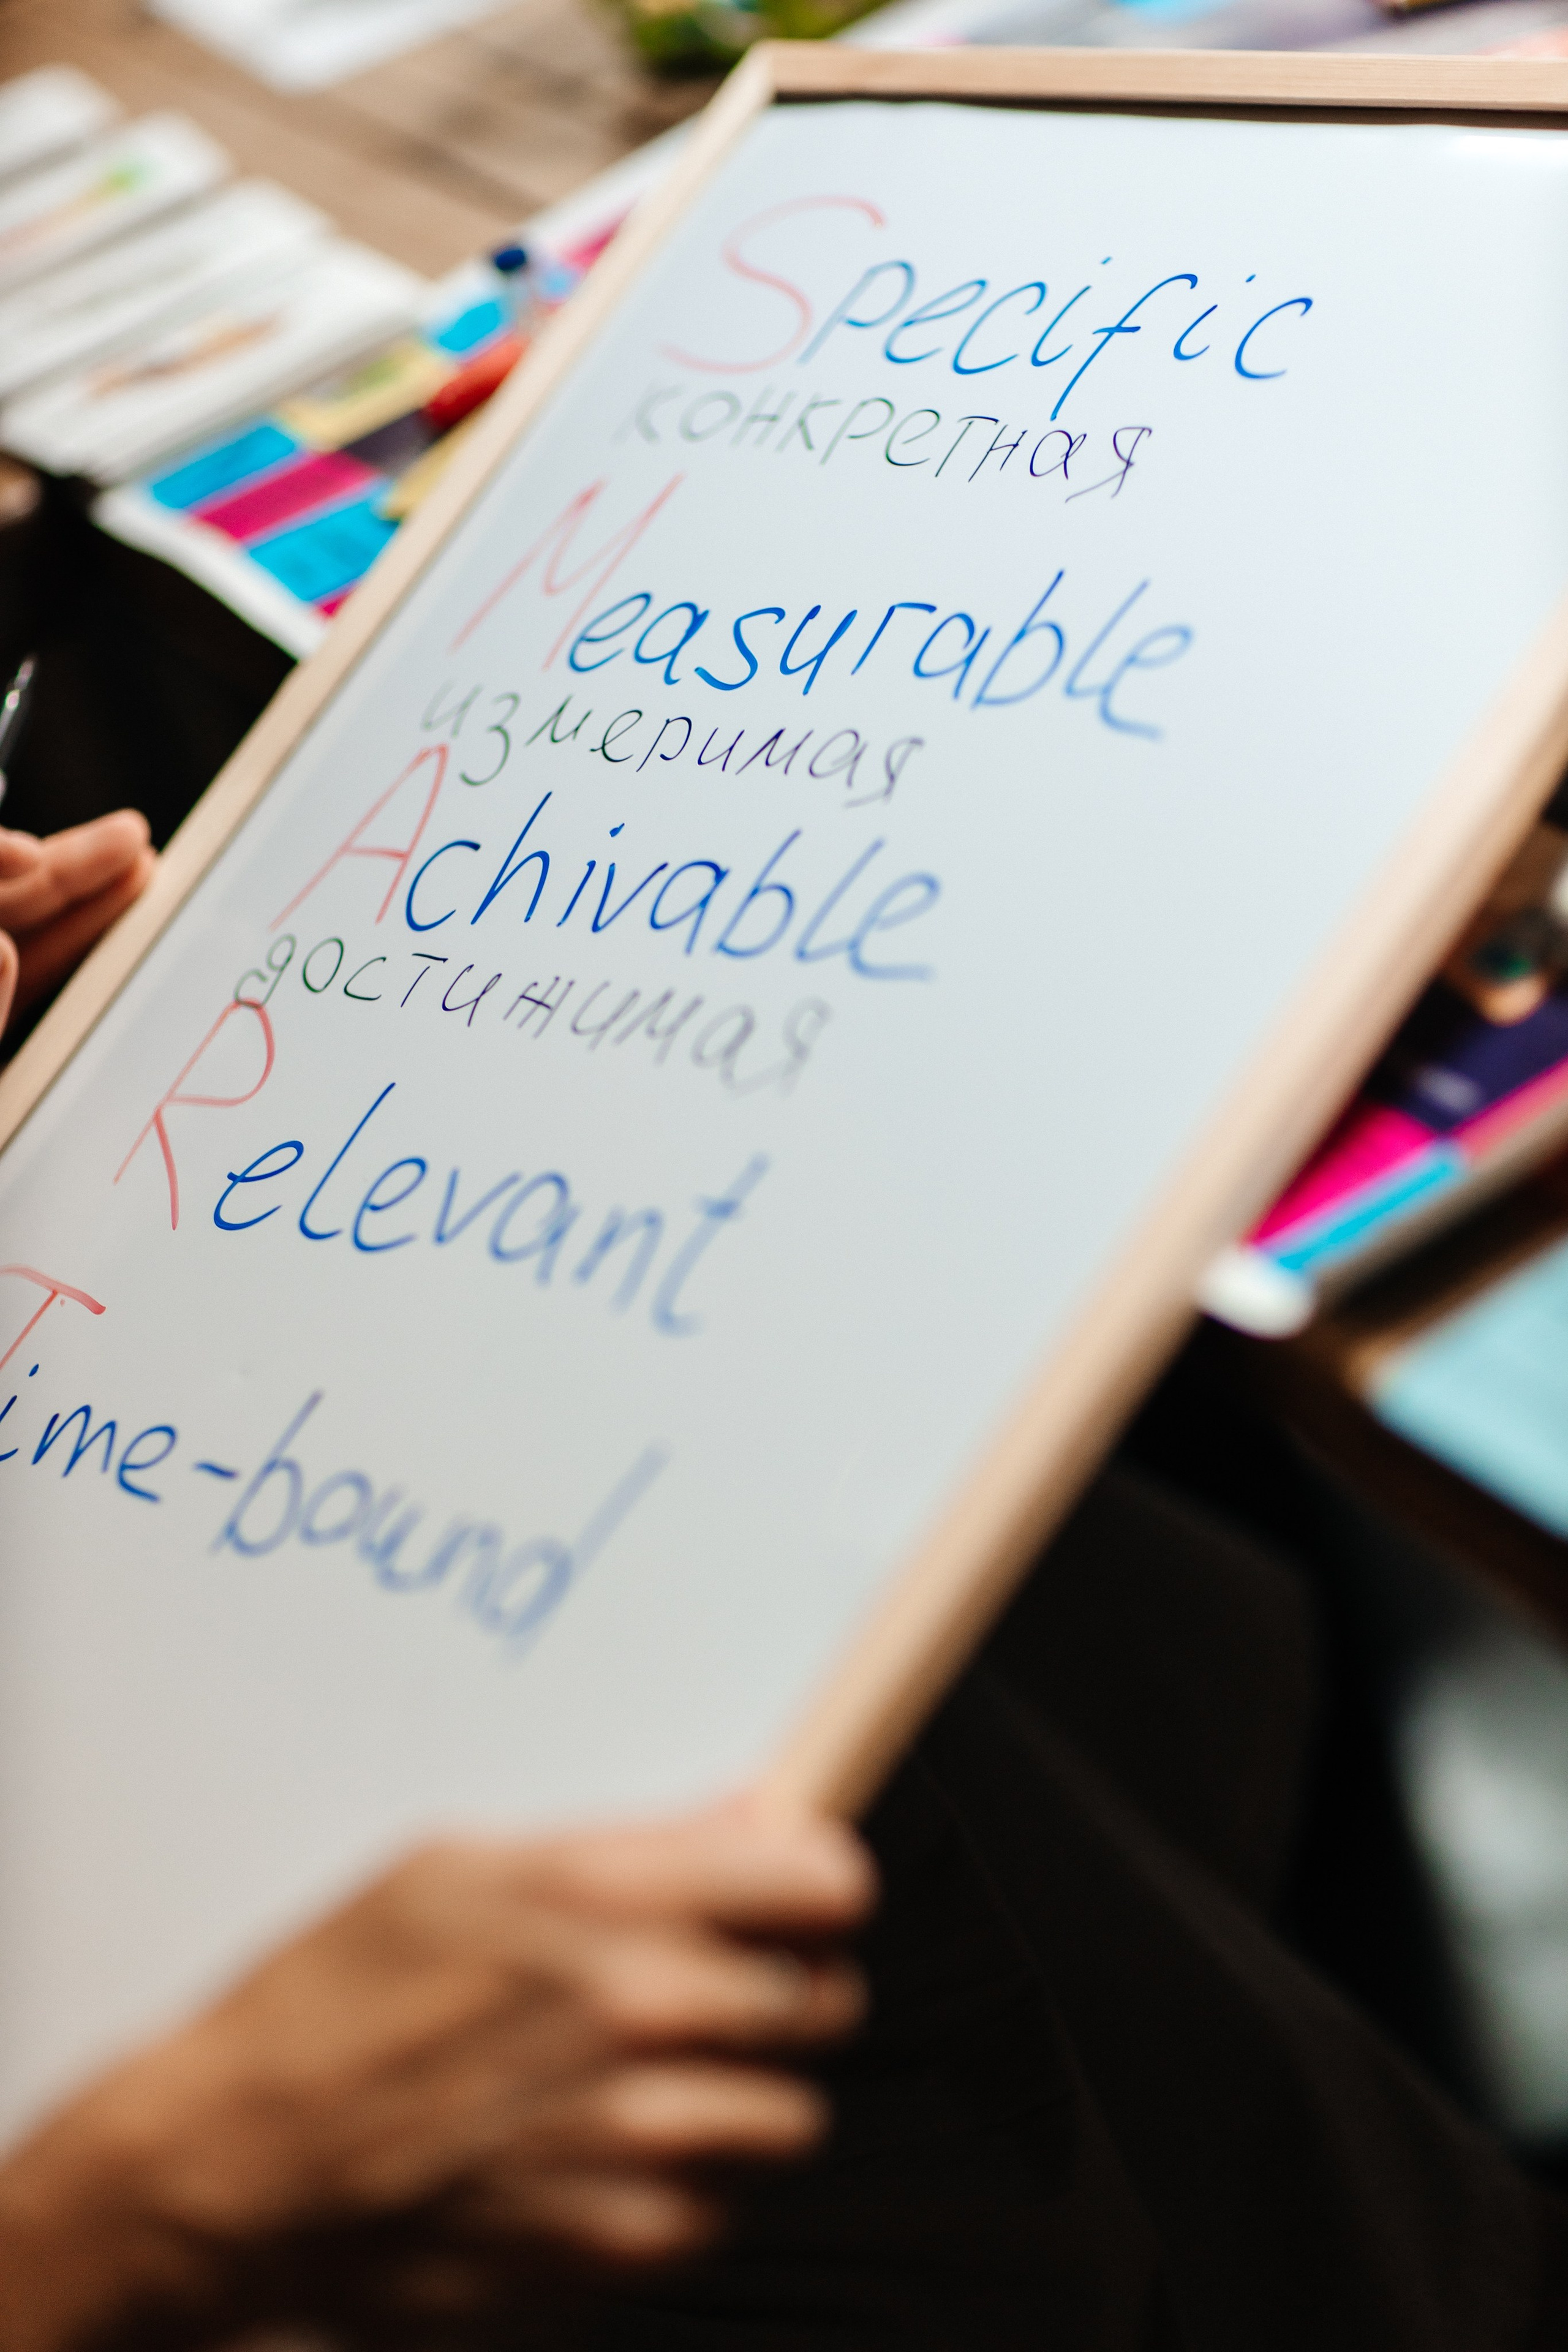 Specific
конкретная
Measurable
измеримая
Achivable
достижимая
Relevant
Time-bound